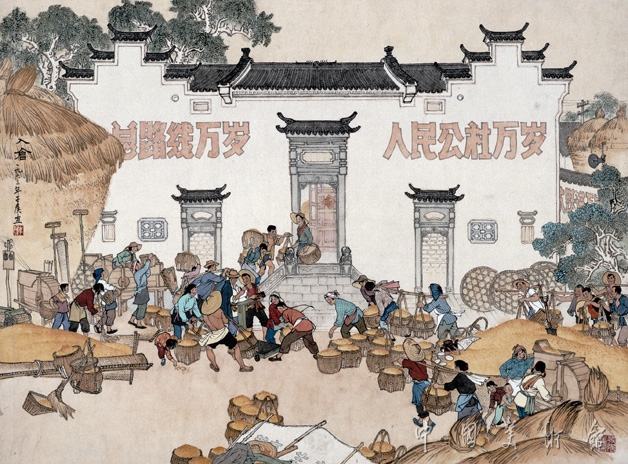 总路线万岁
人民公社万岁
入倉
中国美术馆